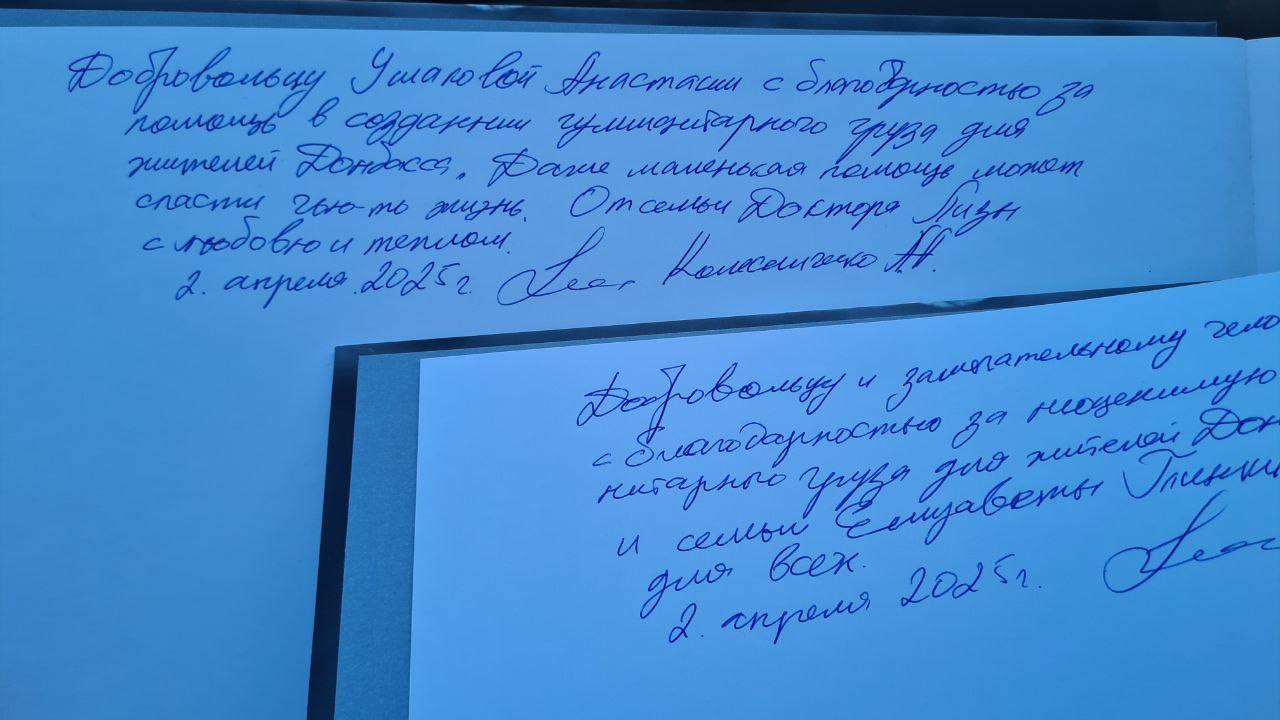 Добровольцу Ушаковой Анастасии с благодарностью за
помощь в создании гуманитарного груза для
жителей Донбасса. Даже маленькая помощь может
спасти чью-то жизнь. От семьи Доктора Лизы
с любовью и теплом.
2. апреля 2025г.
Добровольцу и замечательному чело
с благодарностью за неоценимую
нитарного груза для жителей Дон
и семьи Елизаветы Глинки
для всех.
2. апреля 2025г.